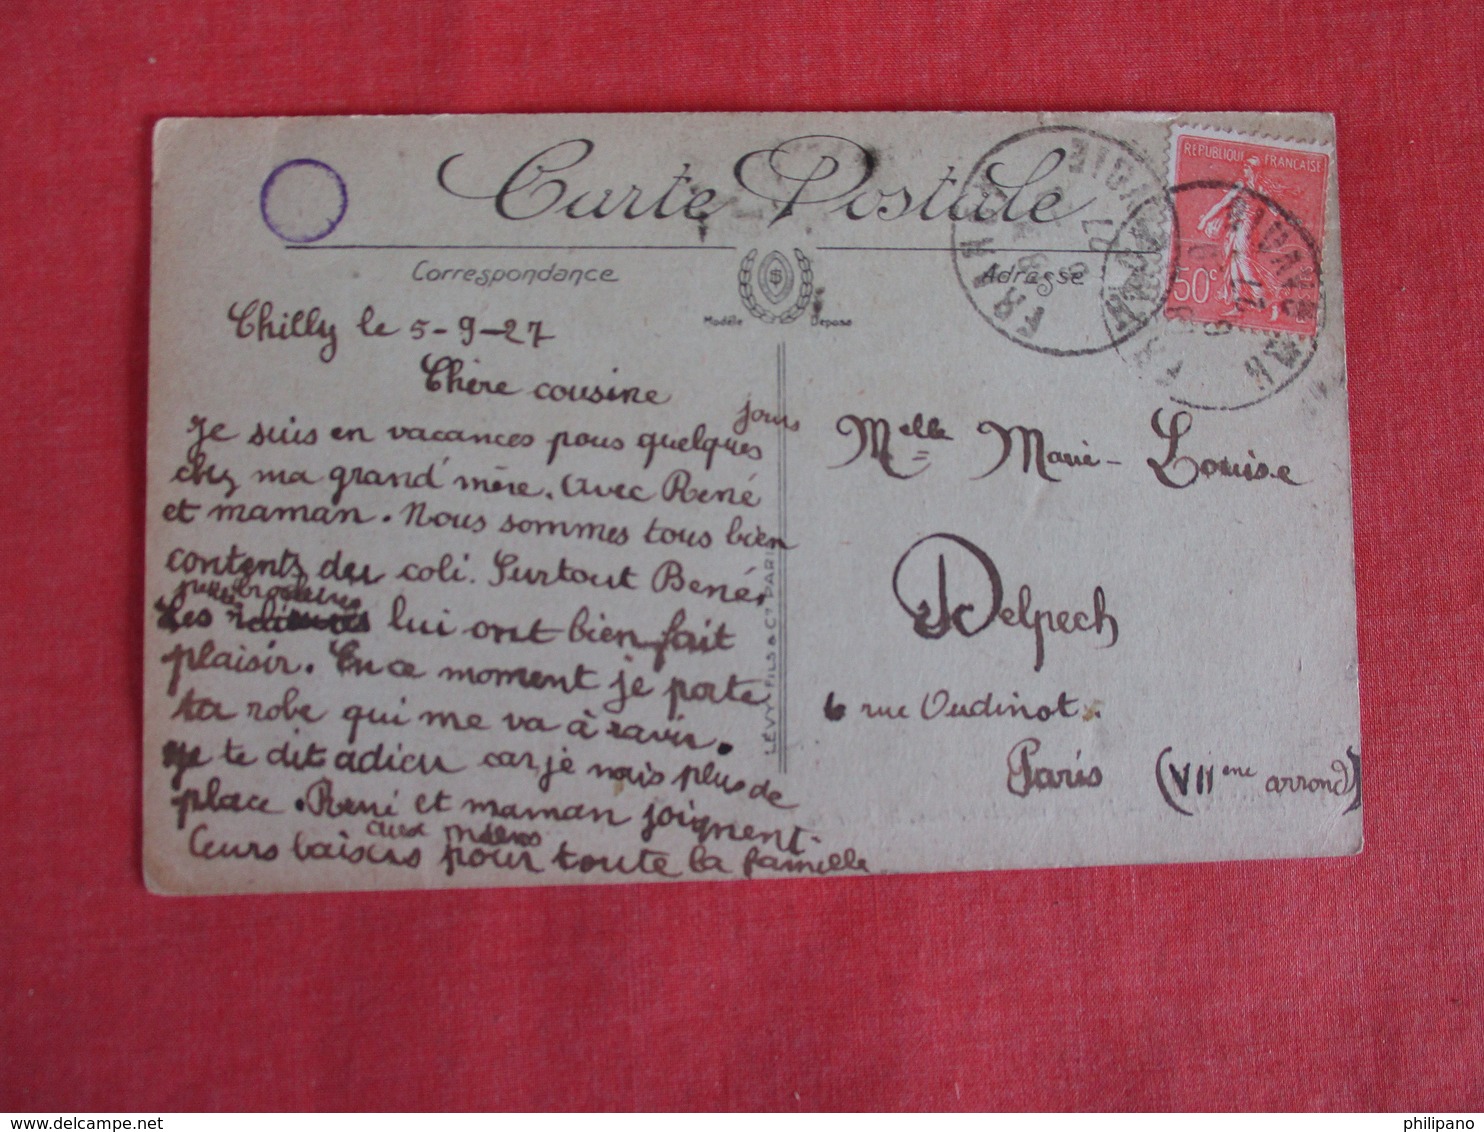 Carte Postale
Correspondance
Adresse
Modèle Déposé
REPUBLIQUE FRANÇAISE
50c
FRANGY
Hte SAVOIE
Chilly le 5-9-27
Chère cousine
Je suis en vacances pous quelques jours
chez ma grand' mère. Avec René
et maman. Nous sommes tous bien
contents du coli. Surtout René.
Les lui ont bien fait
plaisir. En ce moment je porte
ta robe qui me va à ravir.
Je te dit adieu car je nais plus de
place. René et maman joignent
leurs baisers aux miens pour toute la famille
LÉVY FILS & Cie PARIS
Melle Marie-Louise
Delpech
6 rue Oudinot.
Paris (VIIeme arrond)
philipano